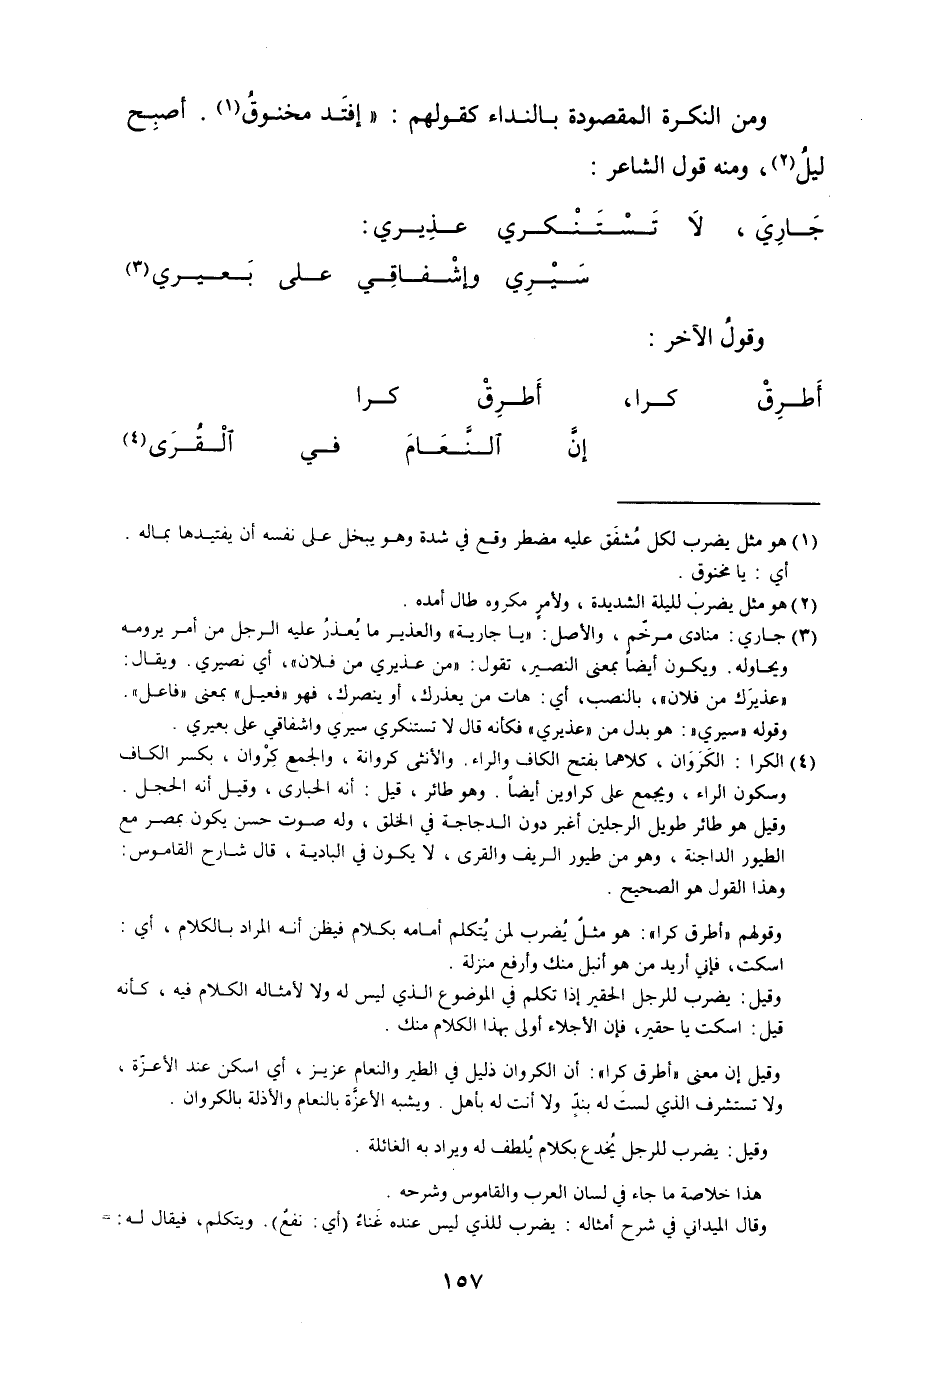 ومن النكرة المقصودة بالنداء كقولهم : « إفتَد مخنوقُ(١) . أصبِح
ليلُ(٢)، ومنه قول الشاعر :
جَارِيَ ، لَا تَسْتَنْكري عذِيري:
سَيْرِي وإشْفاقِي على بَعيري(٣)
وقولُ الآخر :
أَطرِقْ كرا، أَطرِقْ كرا
إنَّ ٱلنَّعَامَ في ٱلْقُرَى(٤)
(١) هو مثل يضرب لكل مُشفَق عليه مضطر وقع في شدة وهو يبخل على نفسه أن يفتيدها بماله .
أي : يا مخنوق .
(٢) هو مثل يضرب لليلة الشديدة ، ولأمرٍ مكروه طال أمده .
(٣) جاري: منادى مرخّم ، والأصل: «يا جارية» والعذير ما يُعذرُ عليه الرجل من أمر يرومه
ويحاوله. ويكون أيضاً بمعنى النصير، تقول: «من عذيري من فلان»، أي نصيري. ويقال:
«عذيرَك من فلان»، بالنصب، أي: هات من يعذرك، أو ينصرك، فهو «فعيل» بمعنى «فاعل».
وقوله «سيري»: هو بدل من «عذيري» فكأنه قال لا تستنكري سيري واشفاقي على بعيري .
(٤) الكرا : الكَرَوَان ، كلاهما بفتح الكاف والراء. والأنثى كروانة ، والجمع كِرْوان ، بكسر الكاف
وسكون الراء ، ويجمع على كراوين أيضاً . وهو طائر ، قيل : أنه الحبارى ، وقيل أنه الحجل .
وقيل هو طائر طويل الرجلين أغبر دون الدجاجة في الخلق ، وله صوت حسن يكون بمصر مع
الطيور الداجنة ، وهو من طيور الريف والقرى ، لا يكون في البادية ، قال شارح القاموس:
وهذا القول هو الصحيح .
وقولهم «أطرق كرا»: هو مثلٌ يُضرب لمن يُتكلم أمامه بكلام فيظن أنه المراد بالكلام ، أي :
اسكت، فإني أريد من هو أنبل منك وأرفع منزلة .
وقيل: يضرب للرجل الحقير إذا تكلم في الموضوع الذي ليس له ولا لأمثاله الكلام فيه ، كأنه
قيل: اسكت يا حقير، فإن الأجلاء أولى بهذا الكلام منك .
وقيل إن معنى «أطرق كرا»: أن الكروان ذليل في الطير والنعام عزيز ، أي اسكن عند الأعزّة ،
ولا تستشرف الذي لستَ له بندٍّ ولا أنت له بأهل . ويشبه الأعزَّة بالنعام والأذلة بالكروان .
وقيل: يضرب للرجل يُخدع بكلام يُلطف له ويراد به الغائلة .
هذا خلاصة ما جاء في لسان العرب والقاموس وشرحه .
وقال الميداني في شرح أمثاله : يضرب للذي ليس عنده غَناءٌ (أي: نفعٌ). ويتكلم، فيقال له: =
١٥٧